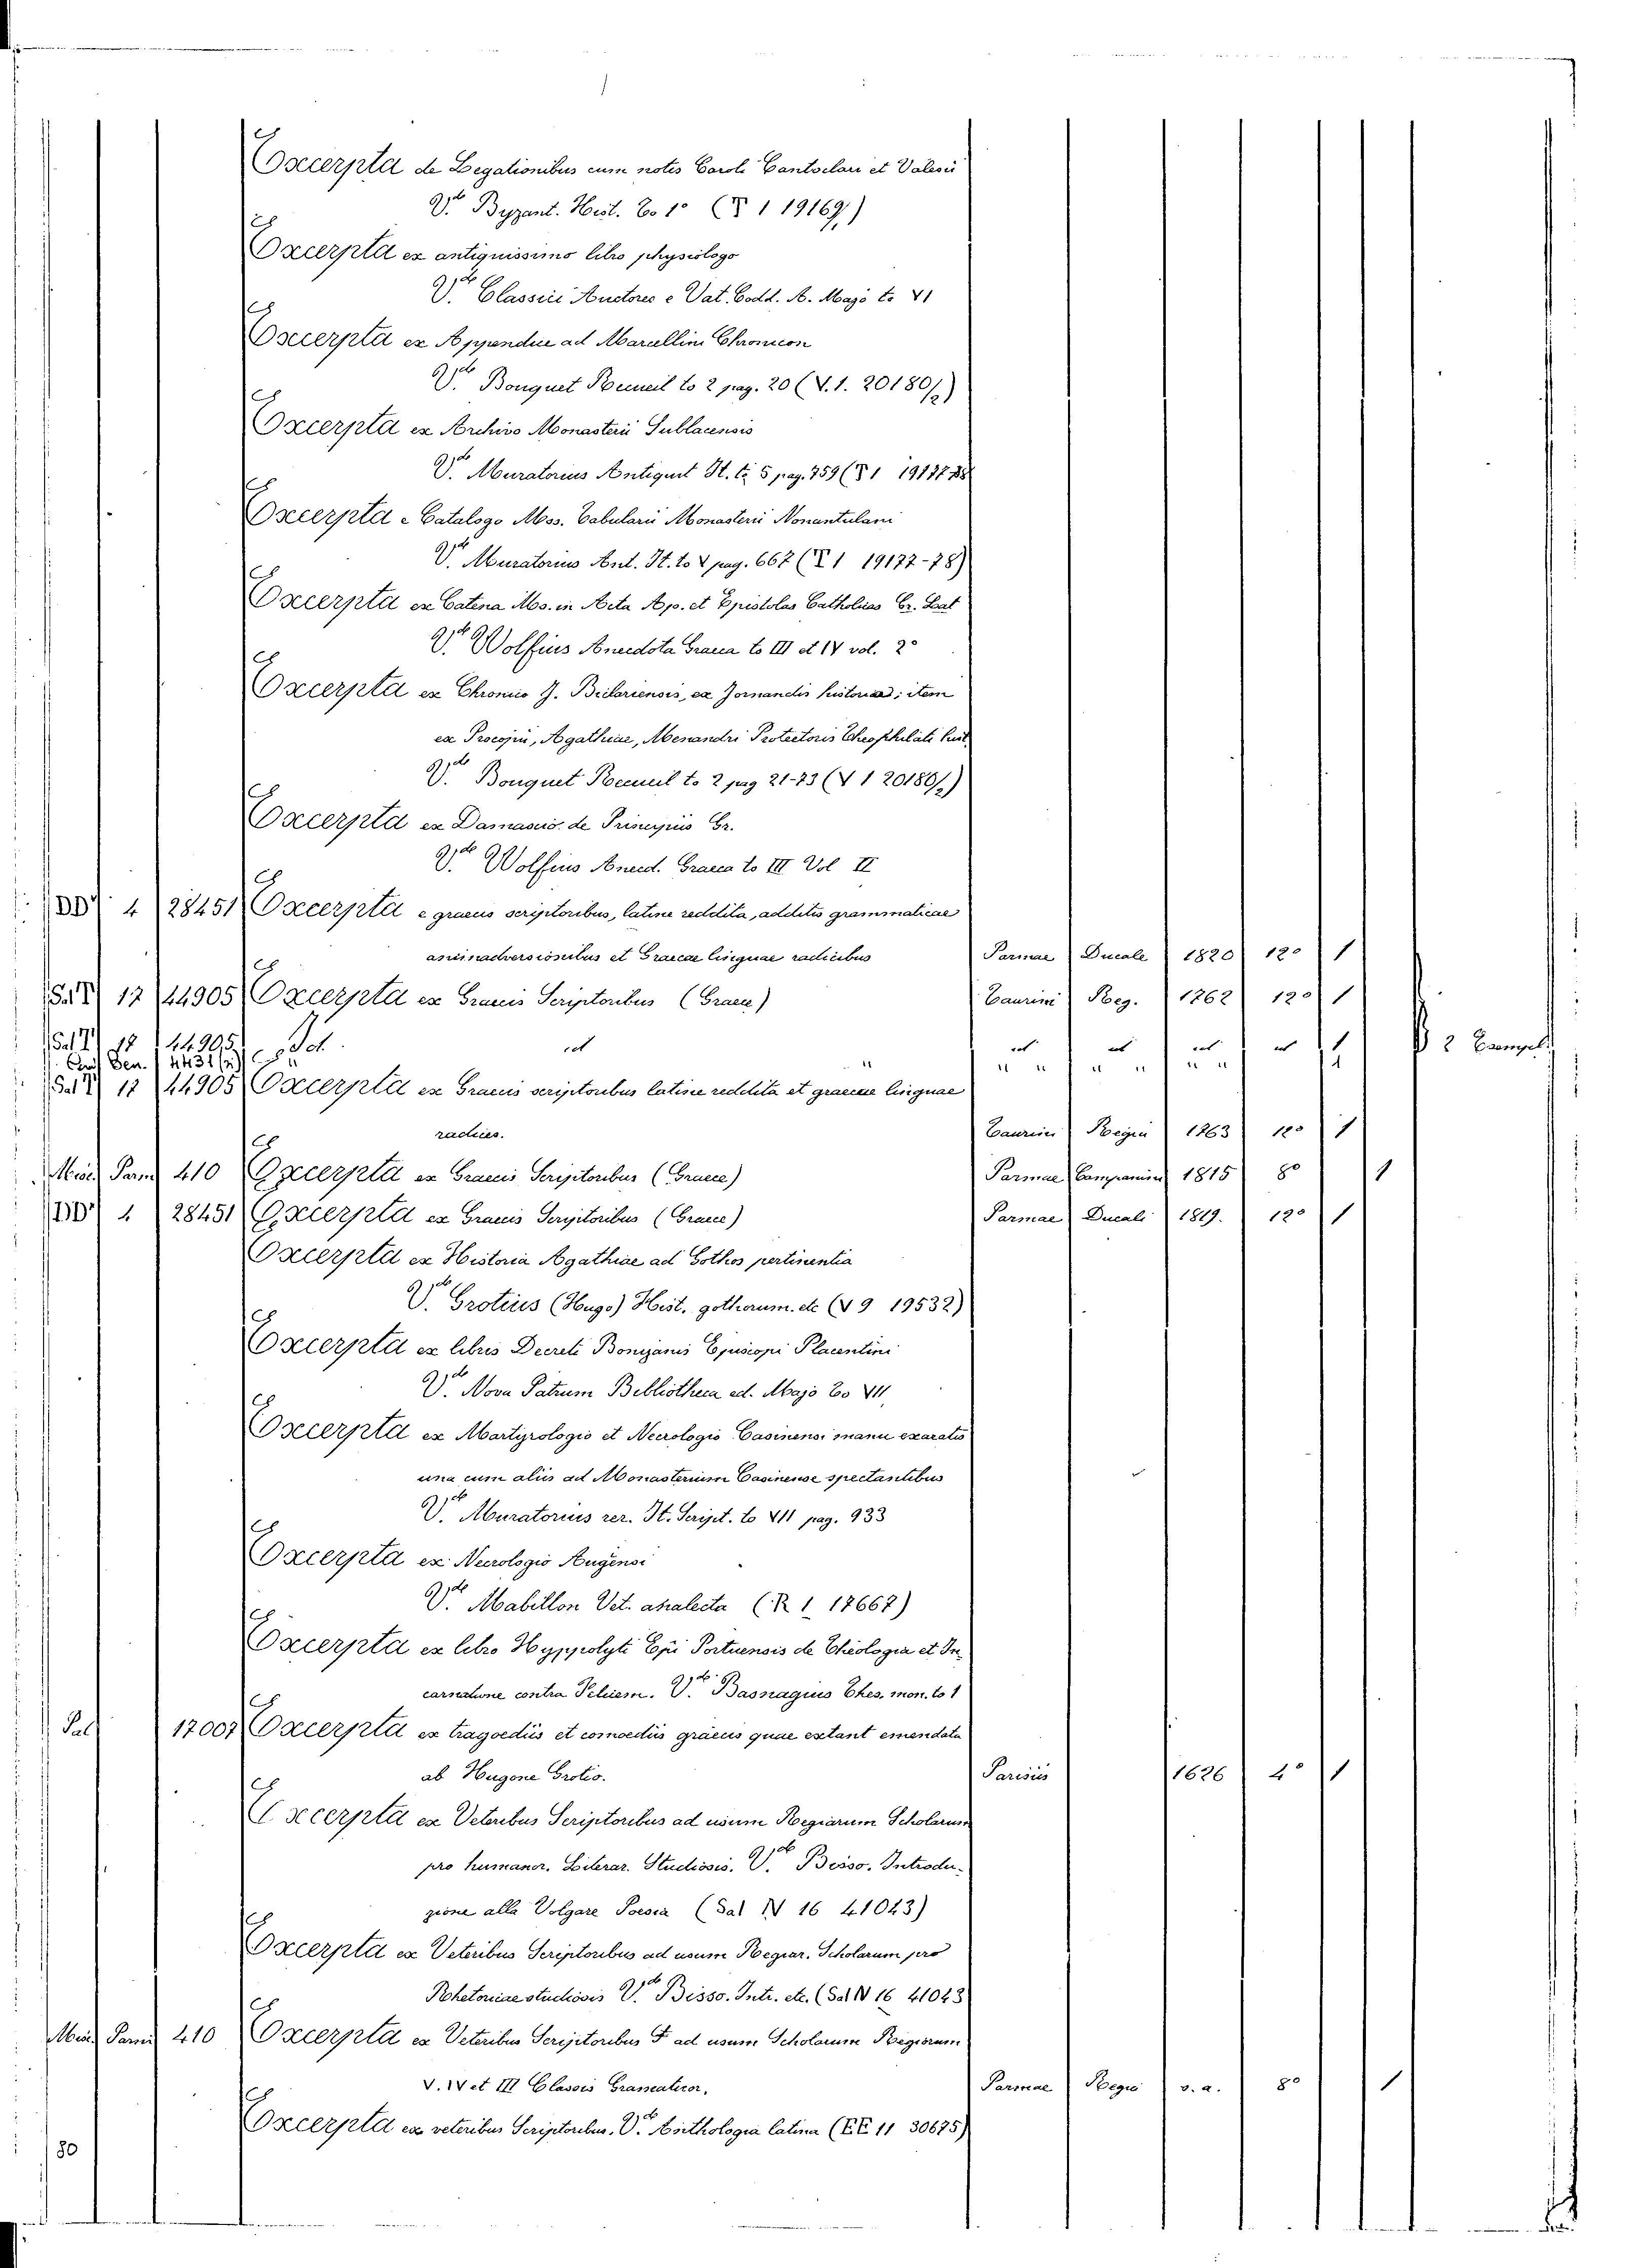 Excerpta de Legationibus cum notis Caroli Cantoclari et Valesii
V.de Byzant. Hist. To 1° (§ 1 19169)
Excerpta ex antiquissimo libro physiologo
V.de Classici Auctores e Vat. Codd. A. Majo to VI
Excerpta ex Appendice ad Marcellini Chronicon
V.de Bouquet Recueil to 2 pag. 20 (V. 1. 20180/2)
Excerpta ex Archivo Monasterii Sublacensis
V.de Muratorius Antiquit It. to 5 pag. 759 (§ 1 19177-78
Excerpta e Catalogo Mss. Tabularii Monasterii Nonantulani
V.de Muratorius Ant. It. to V pag. 667 (§ 1 19177-78)
Excerpta ex Catena Ms. in Acta Ap. et Epistolas Catholicas Gr. Lat
V.de Wolfius Anecdota Graeca to III et IV vol. 2°
Excerpta ex Chronico J. Biclariensis, ex Jornandis historia; item
ex Procopii, Agathiae, Menandri Protectoris Theophilati hist.
V.de Bouquet Recueil to 2 pag 21-73 (V 1 20180/2)
Excerpta ex Damascio de Principiis Gr.
V.de Wolfius Anecd. Graeca to III Vol II
DD 4 28451 Excerpta e graecis scriptoribus, latine reddita, additis grammaticae
animadversionibus et Graecae linguae radicibus Parmae Ducale 1820 12° 1
Sal. 17 44905 Excerpta ex Graecis Scriptoribus (Graece) Taurini Reg. 1762 12° 1
Sal. 17 18 44905 Id. id id id id id 1 2 Exempl.
Gen. 4431 (2) " " " " " " " 1
Sal 17 44905 Excerpta ex Graecis scriptoribus latine reddita et graecae linguae
radices. Taurini Regia 1763 12° 1
Misc. Parm 410 Excerpta ex Graecis Scriptoribus (Graece) Parmae Campanini 1815 8° 1
DD 4 28451 Excerpta ex Graecis Scriptoribus (Graece) Parmae Ducali 1819. 12° 1
Excerpta ex Historia Agathiae ad Gothos pertinentia
V.de Grotius (Hugo) Hist. gothorum. etc (V 9 19532)
Excerpta ex libris Decreti Bonizonis Episcopi Placentini
V.de Nova Patrum Bibliotheca ed. Majo To VII.
Excerpta ex Martyrologio et Necrologio Casinensi manu exaratis
una cum aliis ad Monasterium Casinense spectantibus
V.de Muratorius rer. It. Script. to VII pag. 933
Excerpta ex Necrologio Augensi
V.de Mabillon Vet. analecta (R 1 17667)
Excerpta ex libro Hyppolyti Epi Portuensis de Theologia et In-
carnatione contra Heliem. V.de Basnagius Thes. mon. to 1
Pal 17007 Excerpta ex tragoediis et comoediis graecis quae extant emendata
ab Hugone Grotio. Parisiis 1626 4° 1
Excerpta ex Veteribus Scriptoribus ad usum Regiarum Scholarum
pro humanor. Literar. Studiosis. V.de Bisso. Introdu-
zione alla Volgare Poesia (Sal IV 16 41043)
Excerpta ex Veteribus Scriptoribus ad usum Regiar. Scholarum pro
Rhetoricae studiosis V.de Bisso. Intr. etc. (Sal IV 16 41043
Misc. Parm 410 Excerpta ex Veteribus Scriptoribus ad usum Scholarum Regiarum
V. IV et III Classis Grammaticor. Parmae Regia s. a. 8° 1
Excerpta ex veteribus Scriptoribus. V.de Anthologia latina (EE 11 30675)
80